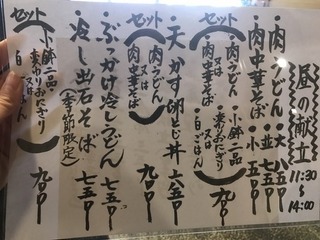 昼の献立
11:30
〜
14:00
・肉うどん 大 八五〇
・肉中華そば 並 七五〇
小 五五〇
セット
・肉うどん
又は
・肉中華そば
・小鉢一品
・麦わりおにぎり
又は
白ごはん
九〇〇
・天かす卵とじ丼 六五〇
セット
肉うどん
又は
肉中華そば
九〇〇
・ぶっかけ冷しうどん 七五〇
・冷し出石そば 七五〇
(季節限定)
セット
小鉢一品
麦わりおにぎり
又は
白ごはん
九〇〇